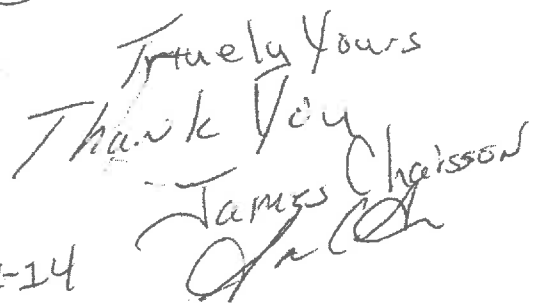 Truely Yours
Thank You
James Chaisson
-14